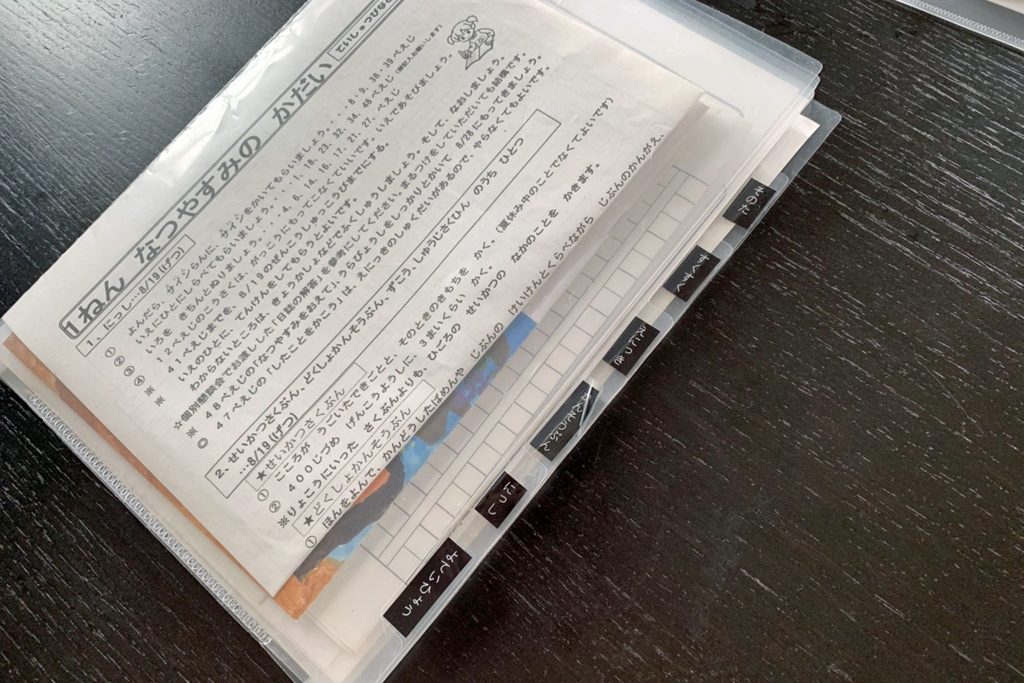 1ねん なつやすみの かだい
ていしゅつびは
1、にっし…8/19(げつ)
① よんだら、タイシくんに、タイシをかいてもらいましょう。
② いえのひとにしらべてもらいましょう。
③ いろを きちんとぬりましょう。
④ 2ページのこうさくは、がっこうにもってこなくていいです。いえであそびましょう。
※ 41ページまでを、8/19のぜんこうしゅっこうびまでにする。
※ いえのひとに、てんけんをしてもらうとよいです。
わからないところは、きょうかしょなどでふくしゅうしましょう。そして、なおしましょう。
☆個別懇談会でお渡しした「日誌の解答」を参考にしてください。まるつけをしていただいても結構です。
※ 48ページの「なつやすみをおえて」は、うらびょうしをしっかりとかいて、8/28にもってきましょう。
◎ 47ページの「したことをかこう」は、えにっきのしゅくだいがあるので、やらなくてもよいです。
2、せいかつさくぶん、どくしょかんそうぶん、ずこう、しゅうじさくひん のうち ひとつ
…8/19(げつ)
★せいかつさくぶん
① こころが うごいたできごとと、そのときのきもちを かく。(夏休み中のことでなくてよいです)
② 400じづめ げんこうようしに、3まいくらい かく。
※りょこうにいった さくぶんよりも、ひごろの せいかつの なかのことを かきます。
★どくしょかんそうぶん
① ほんをよんで、かんどうしたばめんや じぶんの けいけんとくらべながら じぶんのかんがえ、
そのた
すくすく
えにっき
かんそうぶん
にっし
よていひょう